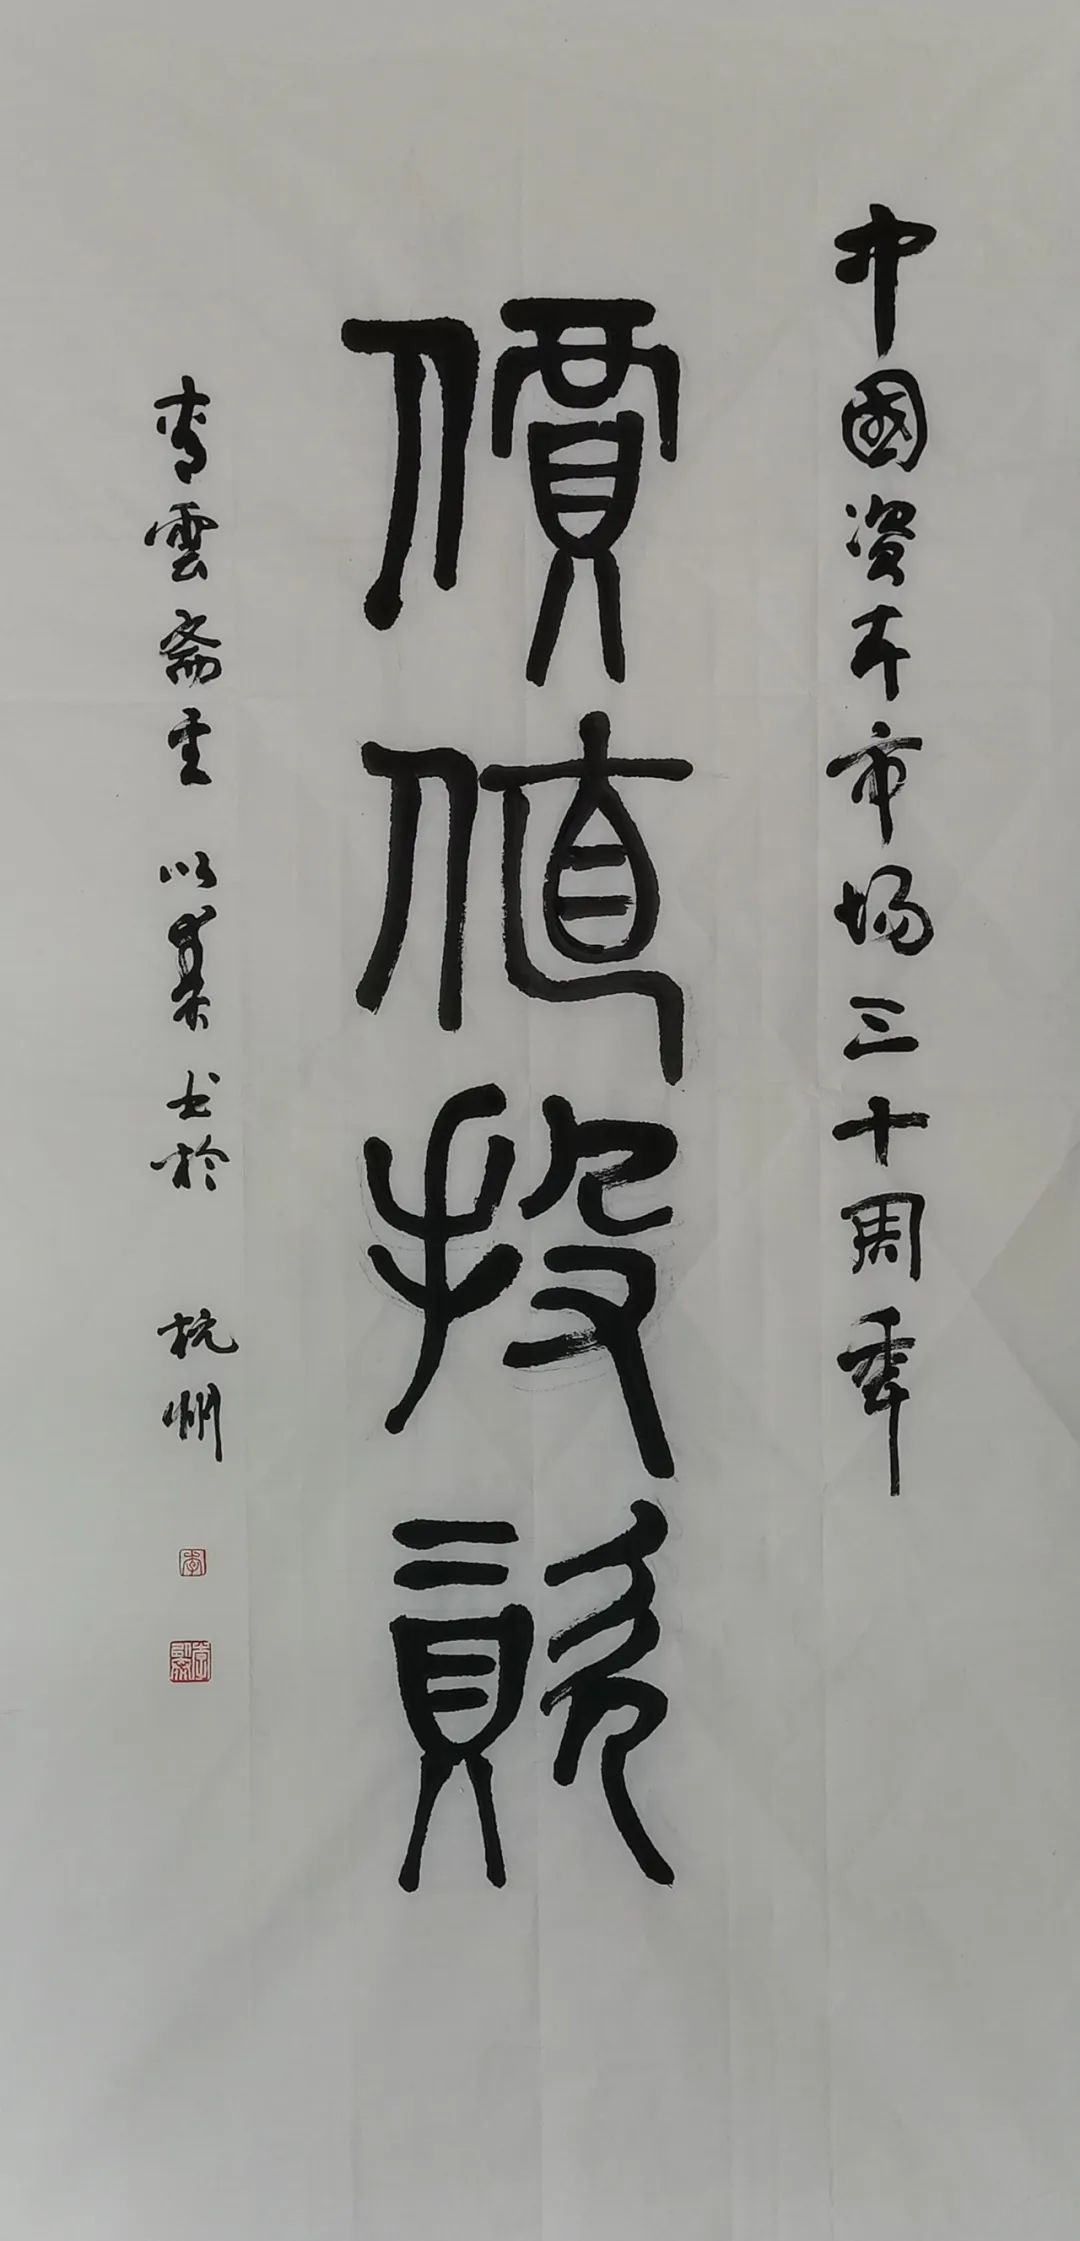 中國资本市场三十周年
價值投資
雲斋主 以篆书於 杭州